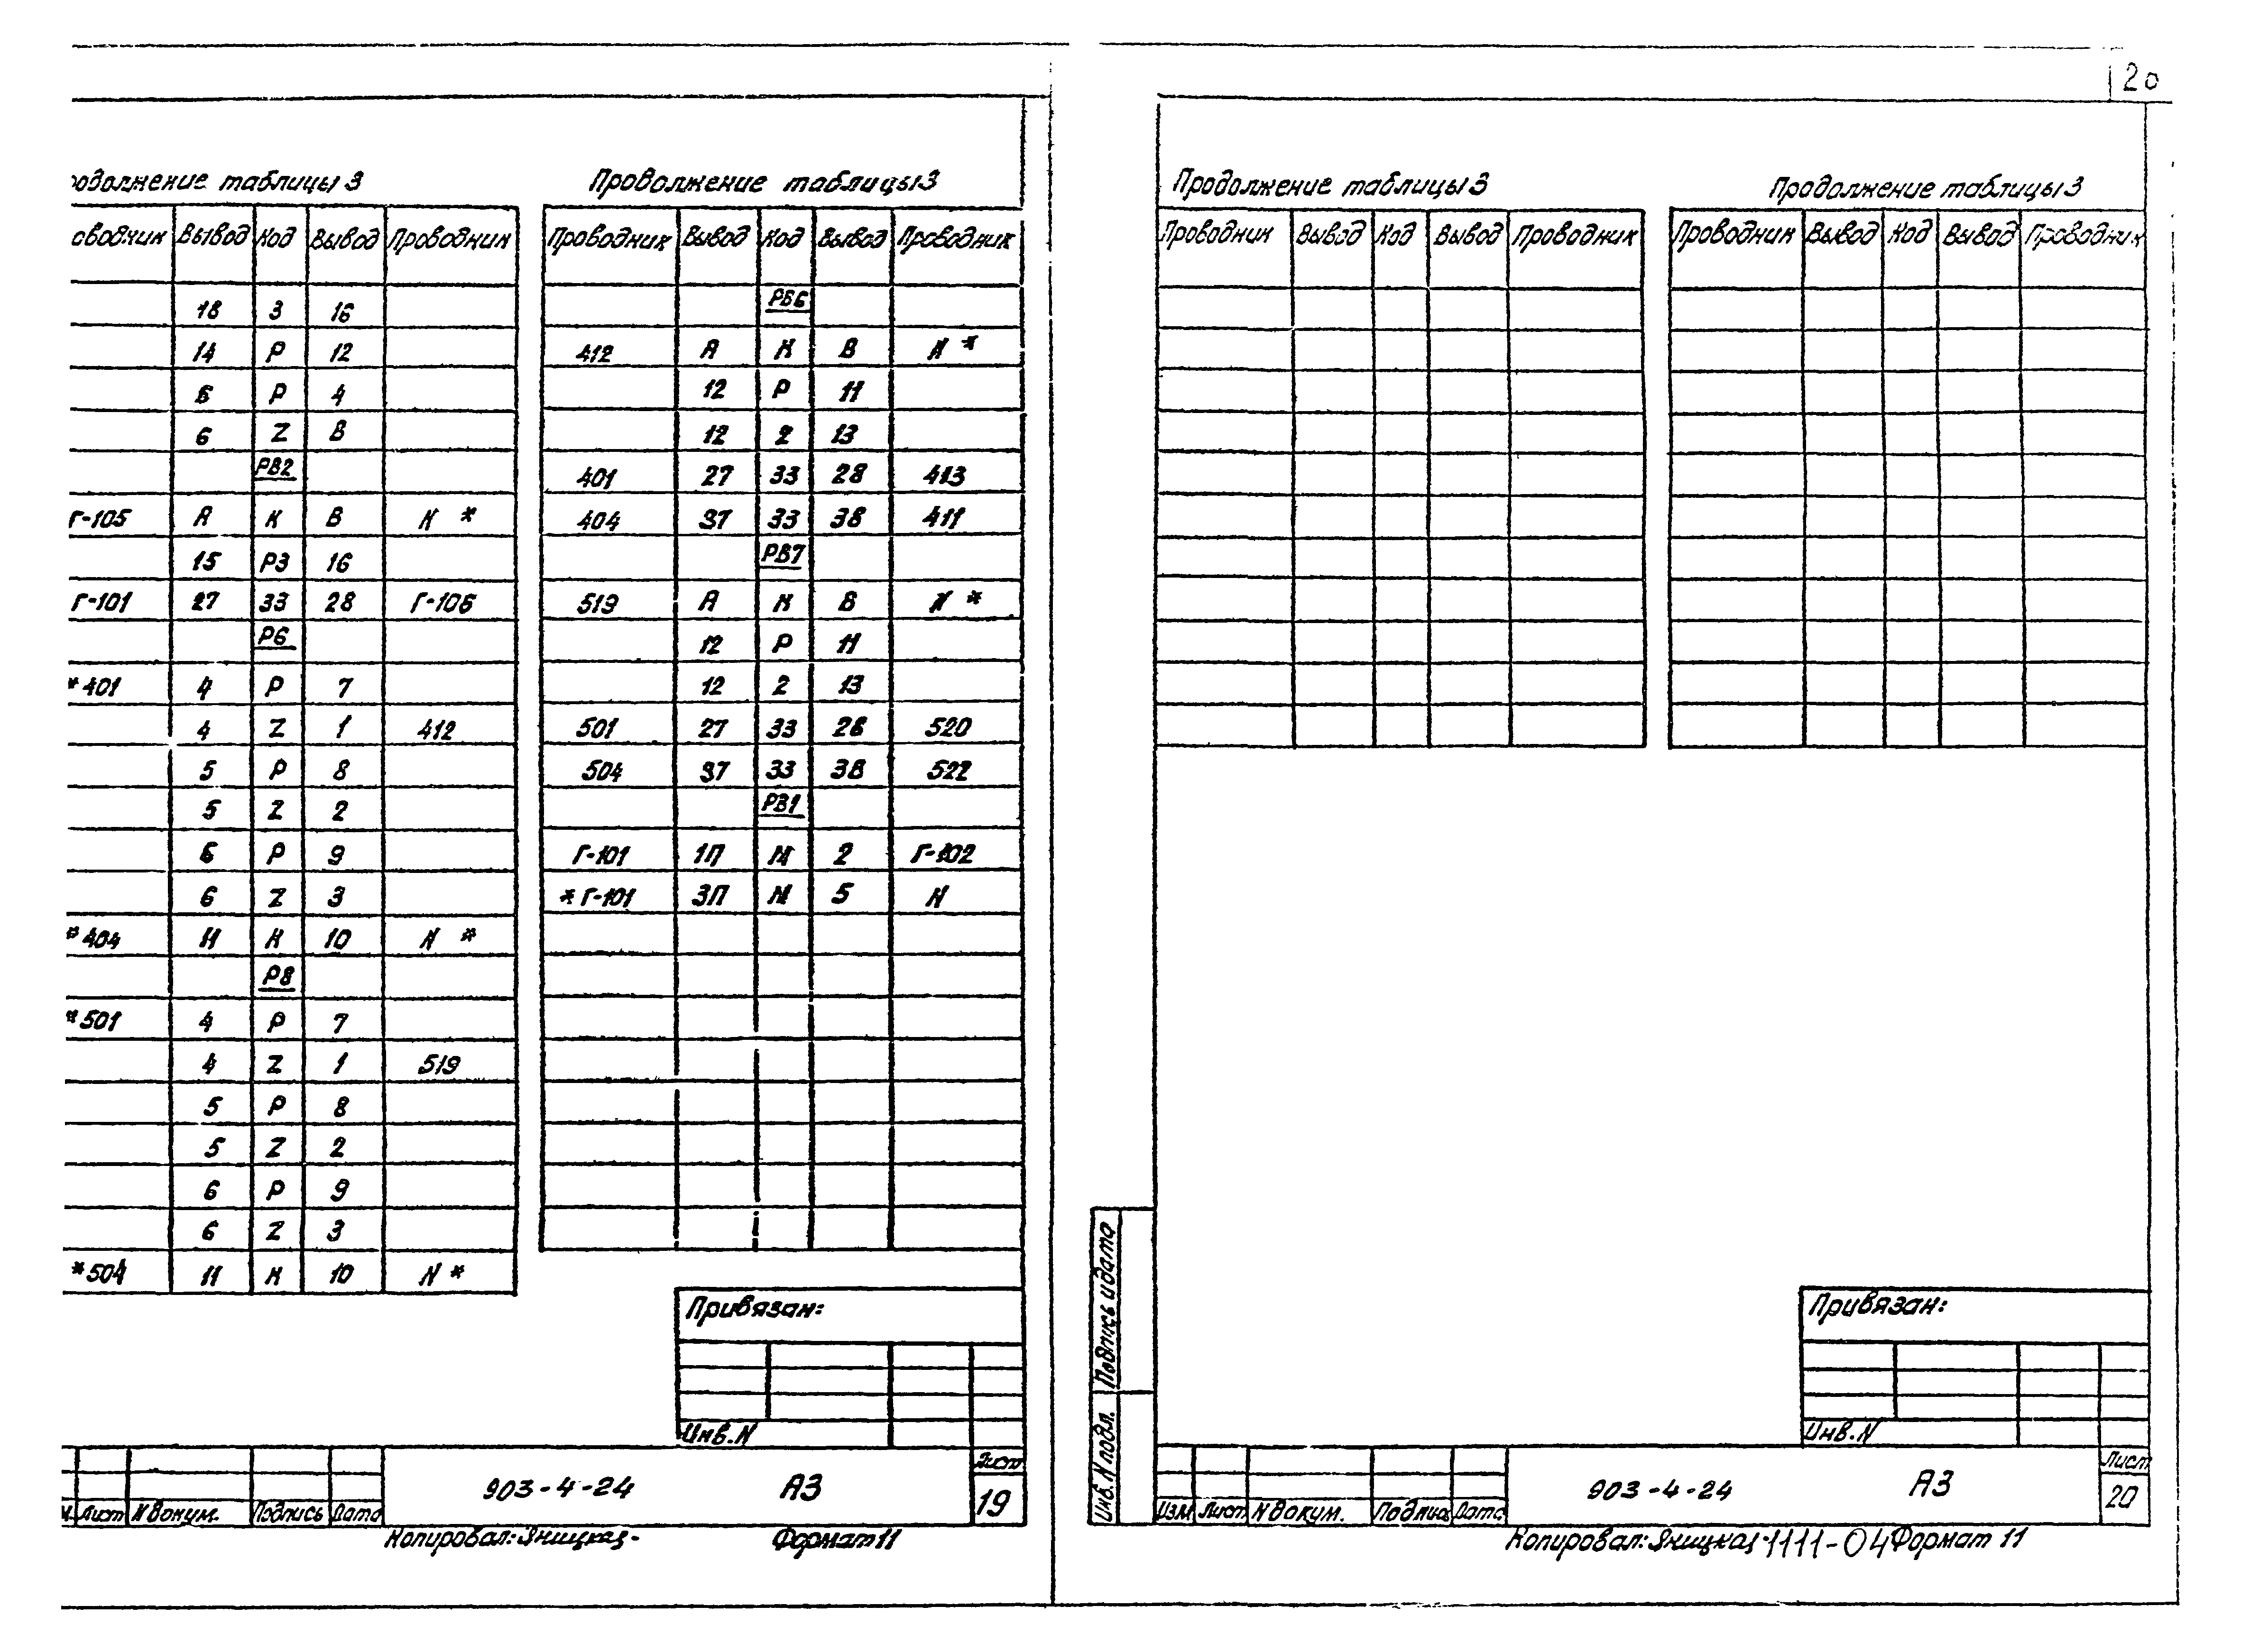 20
Продолжение таблицы 3
Вывод Код Вывод Проводник
18 З 16
14 Р 12
6 Р 4
6 Z В
РВ2
Г-105 А К В N *
15 РЗ 16
Г-101 27 33 28 Г-106
Р6
*401 4 Р 7
4 Z 1 412
5 Р 8
5 Z 2
6 Р 9
6 Z 3
*404 11 К 10 N *
Р8
*501 4 Р 7
4 Z 1 519
5 Р 8
5 Z 2
6 Р 9
6 Z 3
*504 11 К 10 N *
Продолжение таблицы 3
Проводник Вывод Код Вывод Проводник
РВ6
412 А К В N *
12 Р 11
12 2 13
401 27 33 28 413
404 37 33 38 411
РВ7
519 А К В N *
12 Р 11
12 2 13
501 27 33 28 520
504 37 33 38 522
РВ1
Г-101 1П М 2 Г-102
*Г-101 3П М 5 N
Привязан:
Инв.N
Лист N докум. Подпись Дата
903-4-24 А3
Лист
19
Копировал: Яницкая- Формат 11
Продолжение таблицы 3
Проводник Вывод Код Вывод Проводник
Продолжение таблицы 3
Проводник Вывод Код Вывод Проводник
Подпись и дата
Инв. N подл.
Привязан:
Инв.N
Изм Лист N докум. Подпись Дата
903-4-24 А3
Лист
20
Копировал: Яницкая- 1111-04 Формат 11